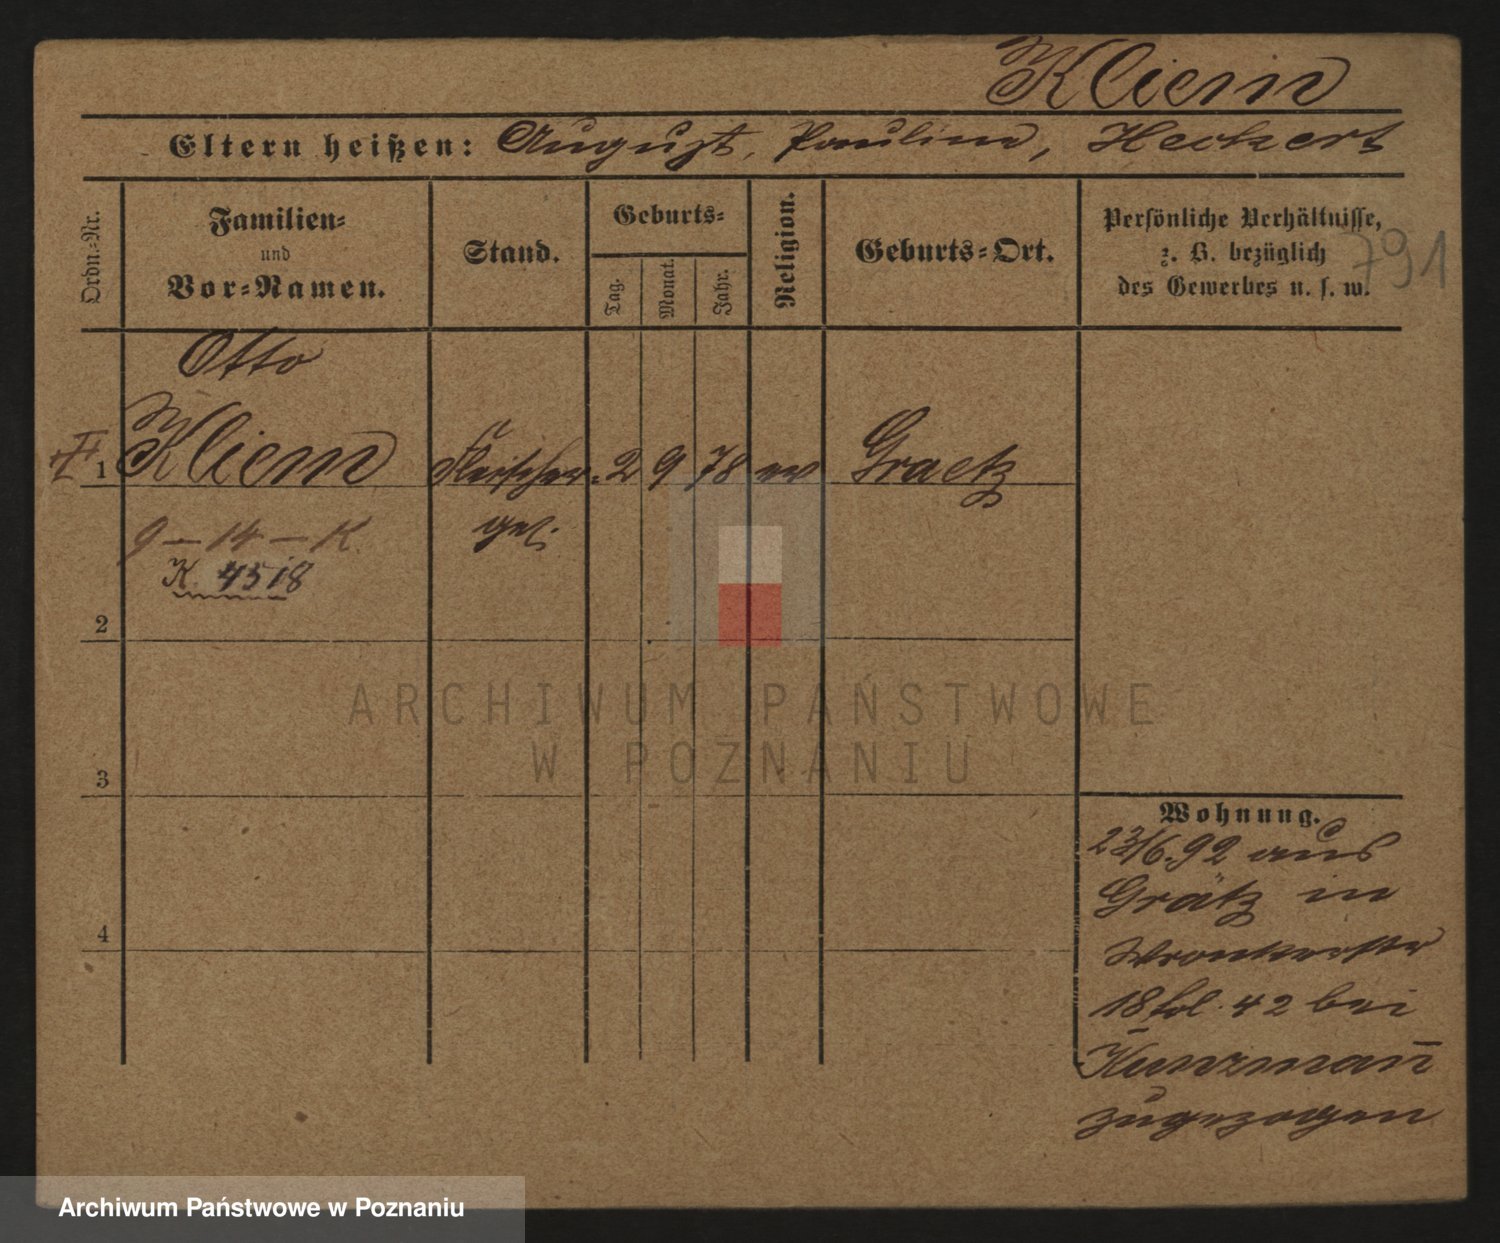 Kliem
Eltern heißen: August, Pauline, Heckert
Ordn.-Nr.
Familien-
und
Vor-Namen.
Stand.
Geburts-
Tag.
Monat.
Jahr.
Religion.
Geburts-Ort.
Persönliche Verhältnisse,
z. B. bezüglich
des Gewerbes u. s. w.
791
Otto
1 Kliem Fleischer- 2 9 78 ev Graetz
ges.
9 - 14 - K.
K. 4518
2
3
4
ARCHIWUM PAŃSTWOWE
W POZNANIU
Wohnung.
23/6.92 aus
Grätz in
Wronkerstr
18 fol. 42 bei
Kunzman̄
zugezogen
Archiwum Państwowe w Poznaniu